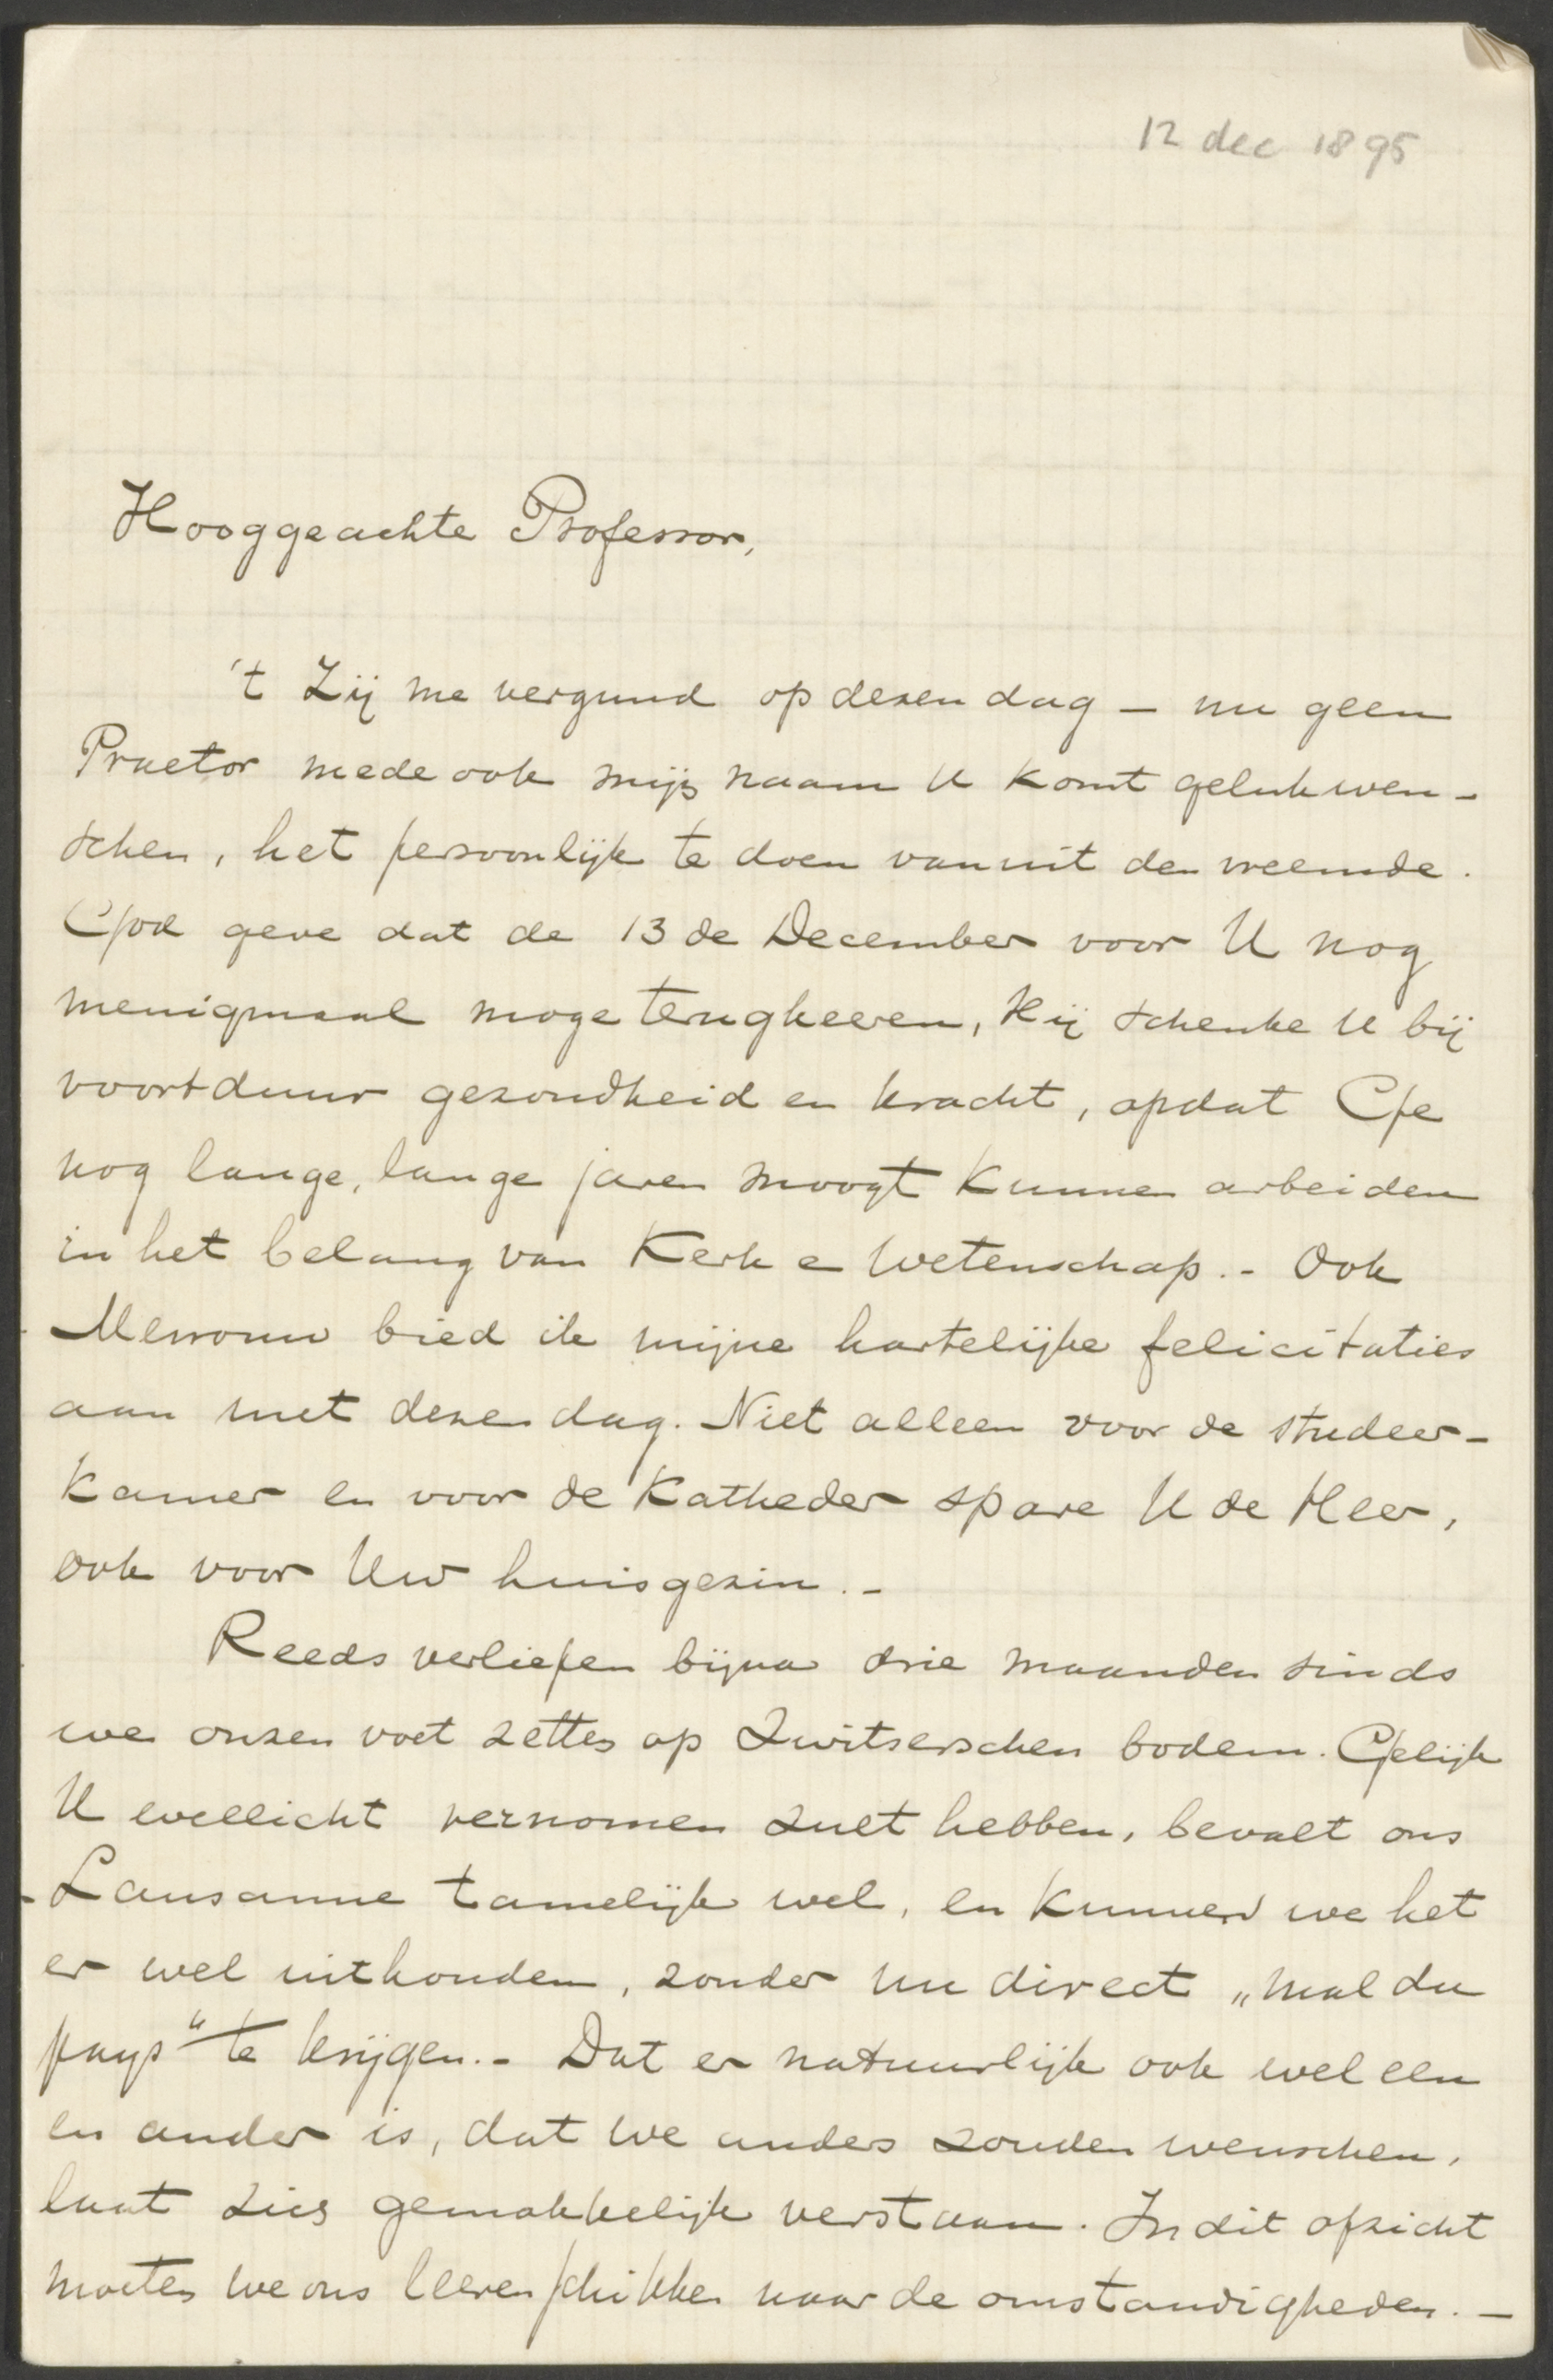 12 dec 1895
Hooggeachte Professor,
't Zij me vergund op dezen dag — nu geen
Praetor mede ook mijn naam U komt gelukwen-
schen, het persoonlijk te doen vanuit den vreemde.
God geve dat de 13de December voor U nog
menigmaal moge terugkeeren, Hij schenke U bij
voortduur gezondheid en kracht, opdat Ge
nog lange, lange jaren moogt kunnen arbeiden
in het belang van Kerk en Wetenschap. - Ook
Mevrouw bied ik mijne hartelijke felicitaties
aan met dezen dag. Niet alleen voor de studeer-
kamer en voor de Katheder spare U de Heer,
ook voor Uw huisgezin. -
Reeds verliepen bijna drie maanden sinds
we onzen voet zetten op Zwitserschen bodem. Gelijk
U wellicht vernomen zult hebben, bevalt ons
Lausanne tamelijk wel, en kunnen we het
er wel uithouden, zonder nu direct „mal du
pays" te krijgen. - Dat er natuurlijk ook wel een
en ander is, dat we anders zouden wenschen,
laat zich gemakkelijk verstaan. In dit opzicht
moeten we ons leeren schikken naar de omstandigheden. —